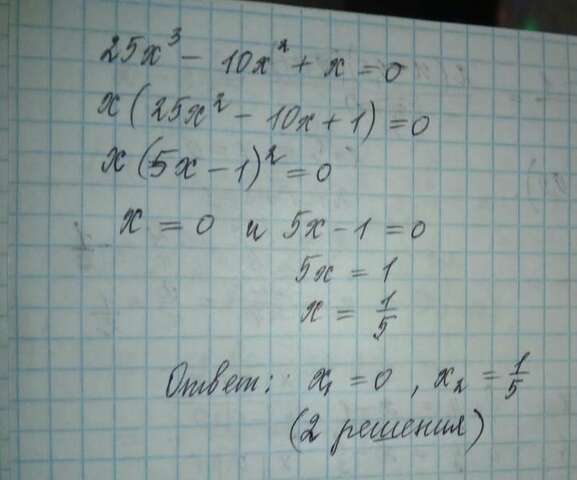 25x³ - 10x² + x = 0
x(25x² - 10x + 1) = 0
x(5x - 1)² = 0
x = 0 и 5x - 1 = 0
5x = 1
x = 1/5
Ответ: x₁ = 0, x₂ = 1/5
(2 решения)